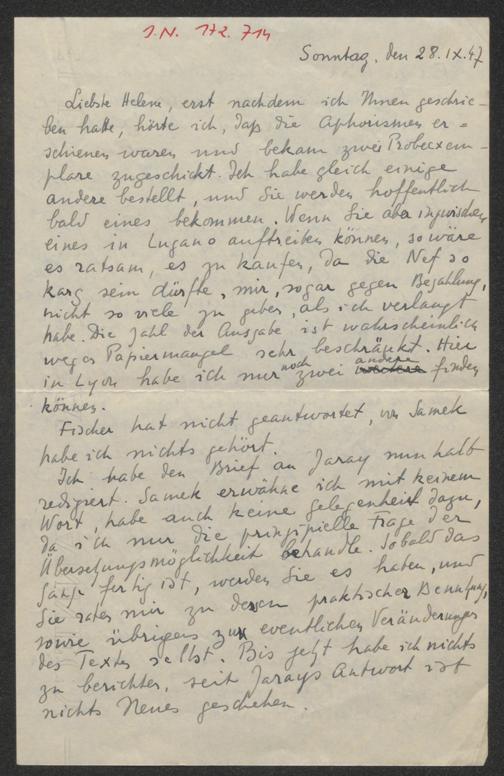 J.N. 172.714
Sonntag, den 28.IX.47
Liebste Helene, erst nachdem ich Ihnen geschrie-
ben hatte, hörte ich, daß die Aphorismen er=
schienen waren und bekam zwei Probeexem-
plare zugeschickt. Ich habe gleich einige
andere bestellt, und Sie werden hoffentlich
bald eines bekommen. Wenn Sie aber inzwischen
eines in Lugano auftreiben können, so wäre
es ratsam, es zu kaufen, da die Nef so
karg sein dürfte, mir, sogar gegen Bezahlung,
nicht so viele zu geben, als ich verlangt
habe. Die Zahl der Ausgabe ist wahrscheinlich
wegen Papiermangel sehr beschränkt. Hier
in Lyon habe ich nur noch zwei andere finden
können.
Fischer hat nicht geantwortet, von Samek
habe ich nichts gehört.
Ich habe den Brief an Jaray nun halb
redigiert. Samek erwähne ich mit keinem
Wort, habe auch keine Gelegenheit dazu,
da ich nur die prinzipielle Frage der
Übersetzungsmöglichkeit behandle. Sobald das
Ganze fertig ist, werden Sie es haben, und
Sie raten mir zu dessen praktischer Benutzung,
sowie übrigens zur eventuellen Veränderungen
des Textes selbst. Bis jetzt habe ich nichts
zu berichten, seit Jarays Antwort ist
nichts Neues geschehen.